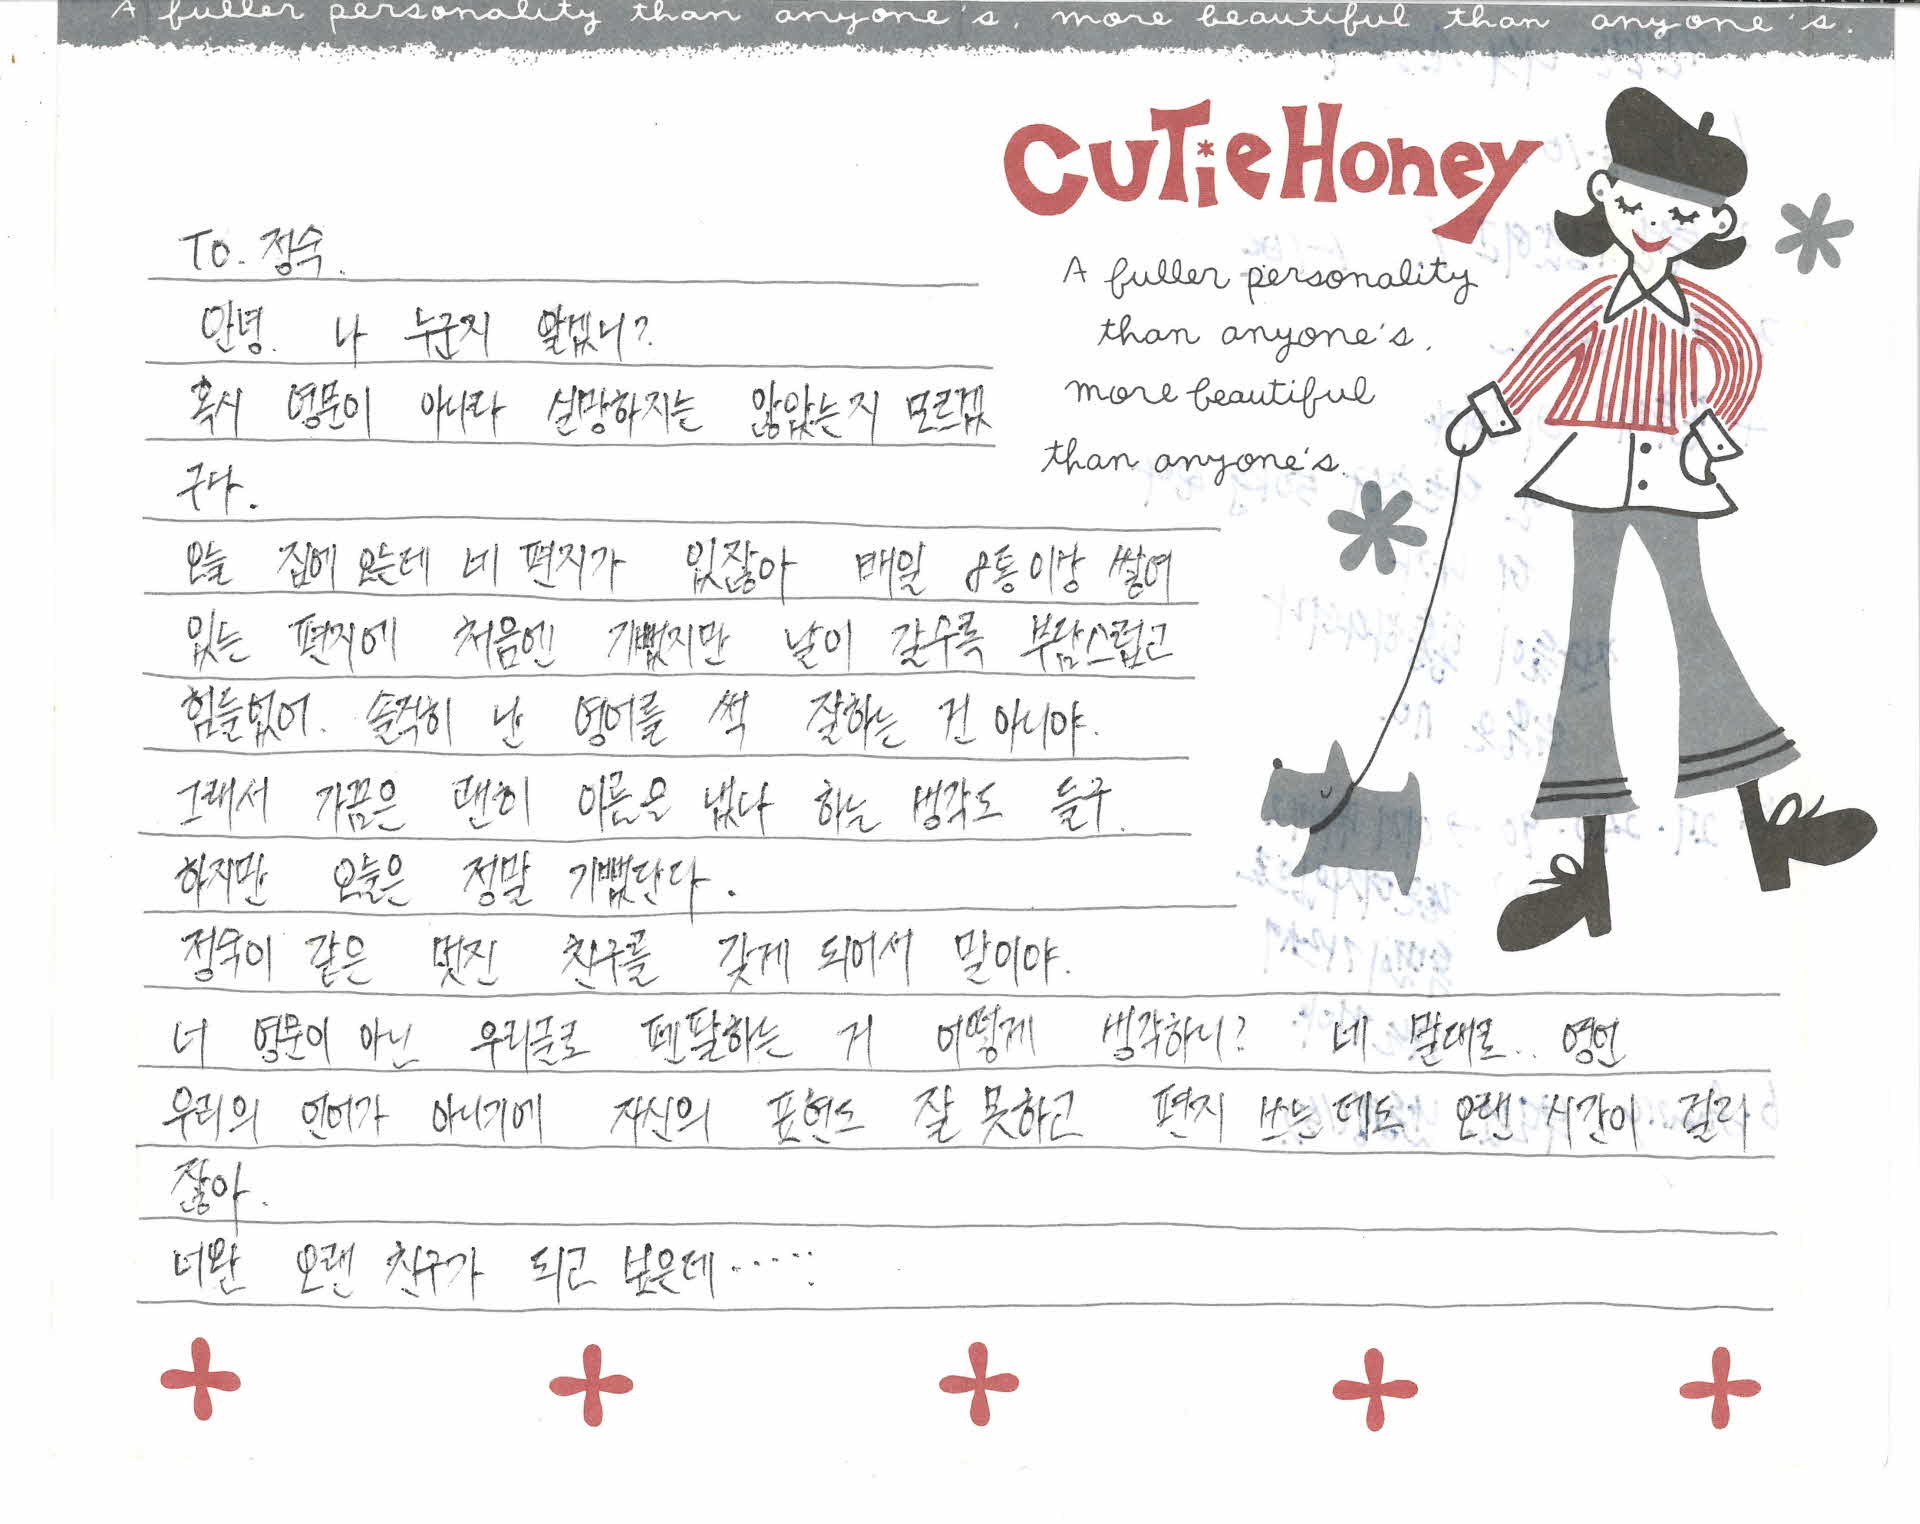 A fuller personality than anyone's, more beautiful than anyone's.
CUTiE HoNey
A fuller personality
than anyone's,
more beautiful
than anyone's.
To. 정숙.
안녕. 나 누군지 알겠니?
혹시 영문이 아니라 실망하지는 않았는지 모르겠
구나.
오늘 집에 오는데 네 편지가 있잖아 매일 8통이상 쌓여
있는 편지에 처음엔 기뻤지만 날이 갈수록 부담스럽고
힘들었어. 솔직히 난 영어를 썩 잘하는 건 아니야.
그래서 가끔은 괜히 이름을 냈다 하는 생각도 들구.
하지만 오늘은 정말 기뻤단다.
정숙이 같은 멋진 친구를 갖게 되어서 말이야.
너 영문이 아닌 우리글로 펜팔하는 거 어떻게 생각하니? 네 말대로.. 영언
우리의 언어가 아니기에 자신의 표현도 잘 못하고 편지 쓰는데도 오랜 시간이 걸리
잖아.
너완 오랜 친구가 되고 싶은데······